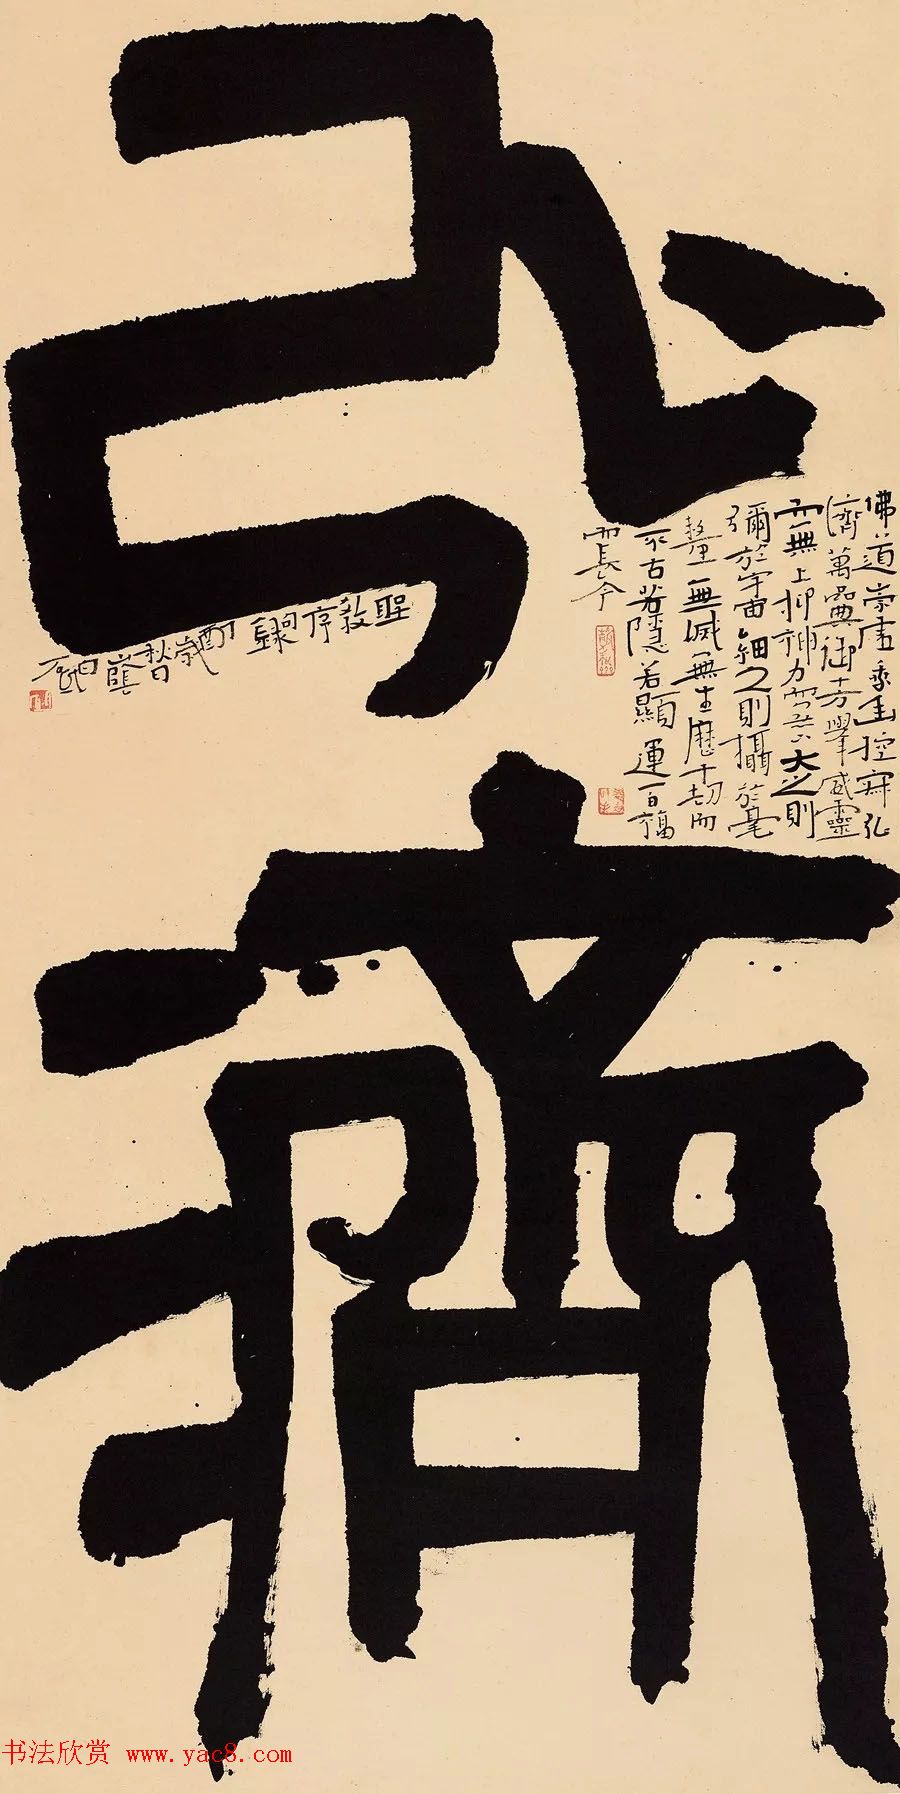 弘濟
佛道崇虛乘幽控寂弘
濟萬品典御十方舉威靈
而無上抑神力而無下大之則
彌於宇宙細之則攝於毫
釐無滅無生歷千劫而
不古若隱若顯運百福
而長今
聖教序 丁酉歲秋日
书法欣赏 www.yac8.com